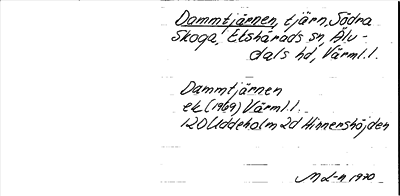 Dammtjärnen, tjärn, Södra
Skoga, Ekshärads sn, Älv-
dals hd, Värml.l.
Dammtjärnen
ek (1969) Värml.l.
120 Uddeholm 2d Hinnershöjden
1970